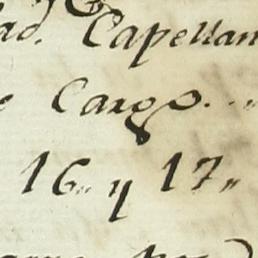 ad. Capellan
Cargo.
16.. y 17..